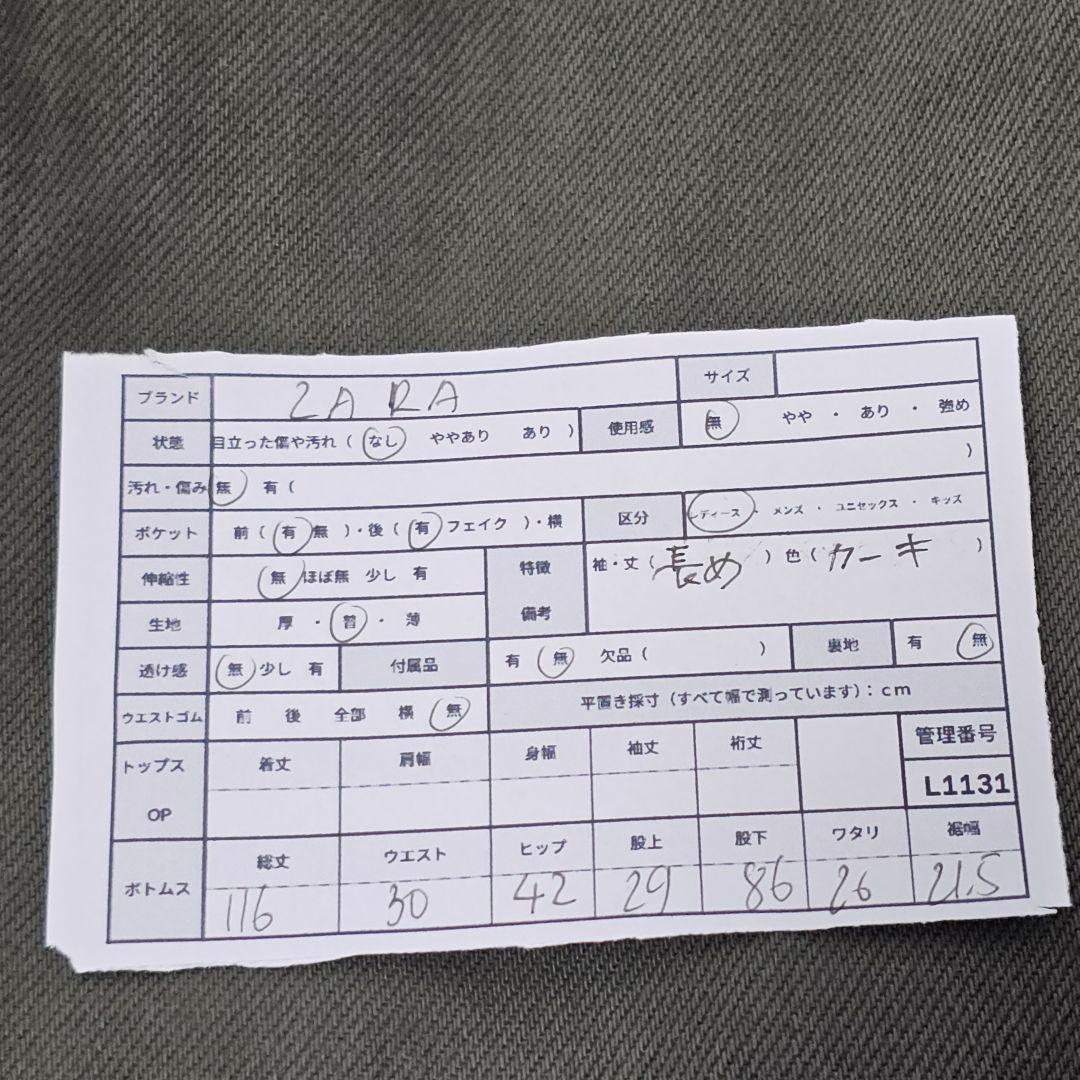 ブランド ZARA サイズ
状態 目立った傷や汚れ ( なし ややあり あり ) 使用感 無 やや ・ あり ・ 強め
汚れ・傷み 無 有 ( )
ポケット 前 ( 有 無 ) ・ 後 ( 有 フェイク ) ・ 横 区分 レディース ・ メンズ ・ ユニセックス ・ キッズ
伸縮性 無 ほぼ無 少し 有 特徴 備考 袖・丈 ( 長め ) 色 ( カーキ )
生地 厚 ・ 普 ・ 薄
透け感 無 少し 有 付属品 有 無 欠品 ( ) 裏地 有 無
ウエストゴム 前 後 全部 横 無 平置き採寸 (すべて幅で測っています) : cm
トップス OP 着丈 肩幅 身幅 袖丈 裄丈 管理番号
L1131
ボトムス 総丈 ウエスト ヒップ 股上 股下 ワタリ 裾幅
116 30 42 29 86 26 21.5